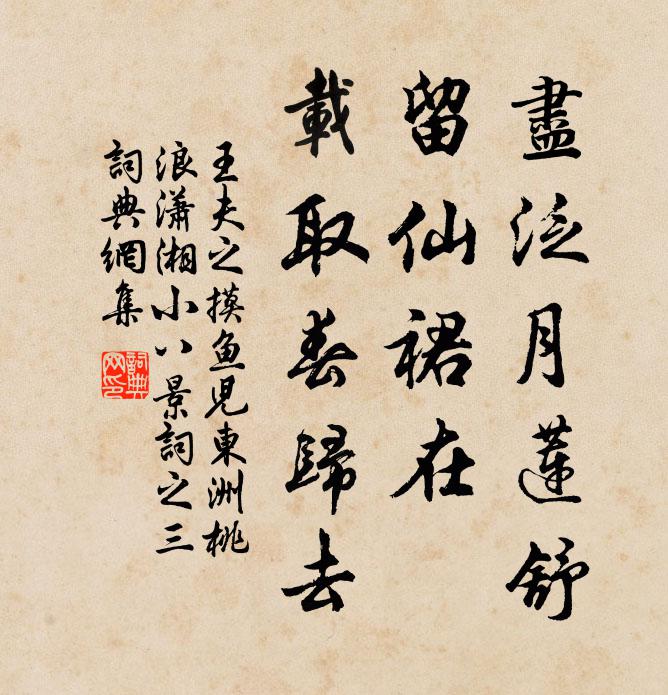 盡泛月蓮舒
留仙裙在
載取春歸去
王夫之摸魚兒東洲桃
浪瀟湘小八景詞之三
詞典網集
詞典網印